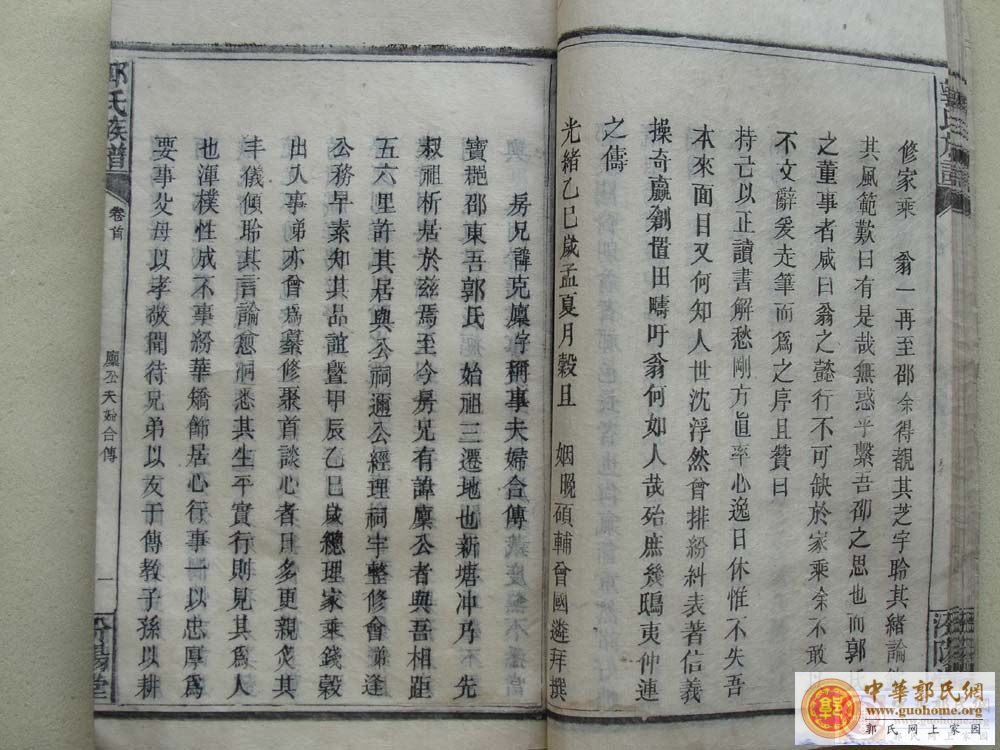 修家乘　翁一再至邵余得覩其芝宇聆其緒論
其風範歎曰有是哉無惑乎繫吾邵之思也而郭
之董事者咸曰翁之懿行不可缺於家乘余不敢
不文辭爰走筆而爲之序且贊曰
持己以正讀書解愁剛方直率心逸日休惟不失吾
本來面目又何知人世沈浮然曾排紛糾表著信義
操奇贏創置田疇吁翁何如人哉殆庶幾鴟夷仲連
之儔
光緒乙巳歲孟夏月穀旦　姻晚碩輔曾國遴拜撰
房兄諱克廩字稱事夫婦合傳
寶邵東吾郭氏　始祖三遷地也新塘冲乃　先
叔祖析居於兹焉至今房兄有諱廩公者與吾相距
五六里許其居與公祠邇公經理祠宇整修會第逢
公務早素知其品誼暨甲辰乙巳歲總理家乘錢穀
出入事弟亦曾爲纂修聚首談心者日多更親炙其
丰儀傾聆其言論愈洞悉其生平實行則見其爲人
也渾樸性成不事紛華矯飾居心行事一以忠厚爲
要事父母以孝敬聞待兄弟以友于傳教子孫以耕
郭氏族譜
卷首
廩公夫婦合傳
一
汾陽堂
郭氏族譜
汾陽
中華郭氏網
www.guohome.org
郭氏网上家园